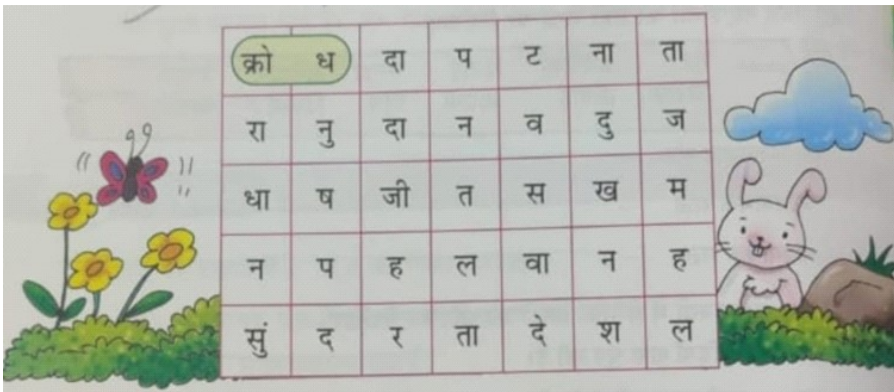 क्रो ध दा प ट ना ता
रा नु दा न व दु ज
धा ष जी त स ख म
न प ह ल वा न ह
सुं द र ता दे श ल